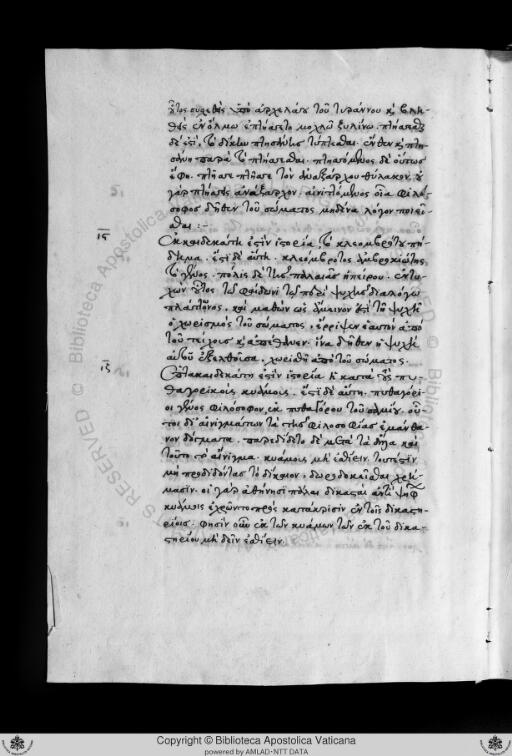 οὗτος συσχεθεὶς ὑπὸ ἀρχελάου τοῦ τυράννου καὶ βλη-
θεὶς ἐν ὅλμω ἐπτίσσετο μοχλῶ ξυλίνω. πτίσσεσθαι
δέ ἐστι, τὸ τύπτεσθαι. ἔνθεν καὶ πτι-
σάνη παρὰ τὸ πτίσσεσθαι. πτισσόμενος δὲ οὕτως
ἔφη. πτίσσε πτίσσε τὸν ἀναξάρχου θύλακον, οὐ
γὰρ πτίσσεις ἀνάξαρχον. αἰνιττόμενος οἷα φιλό-
σοφος δῆθεν τοῦ σώματος μηδένα λόγον ποιεῖ-
σθαι :
ις
Ἑκκαιδεκάτη ἐστὶν ἱστορία, τὸ κλεομβρότου πή-
δημα. ἔστι δὲ αὕτη. κλεόμβροτος ἀμβρακιώτης
τὸ γένος. πόλις δὲ τῆς παλαιᾶς ἠπείρου. ἐντυ-
χὼν οὗτος τῶ φαίδωνι τῶ περὶ ψυχῆς διαλόγω
πλάτωνος. καὶ μαθὼν ὡς ἄμεινον ἐστὶ τῆ ψυχῆ
ὁ χωρισμὸς τοῦ σώματος, ἔρριψεν ἑαυτὸν ἀπὸ
τοῦ τείχους καὶ ἀπέθανεν. ἵνα δῆθεν ἡ ψυχὴ
αὐτοῦ ἐξελθοῦσα, χωρισθῆ ἀπὸ τοῦ σώματος.
ιζ
Ἑπτακαιδεκάτη ἐστὶν ἱστορία ἡ κατὰ τοὺς πυ-
θαγορικοὺς κυάμους. ἔστι δὲ αὕτη. πυθαγόρει-
οι γένος φιλοσόφων, ἐκ πυθαγόρου τοῦ σαμίου. οὗ-
τοι δι' αἰνιγμάτων τὰ τῆς φιλοσοφίας ἐμάνθα-
νον δόγματα. παρεδίδοτο δὲ μετὰ τὰ ἄλλα καὶ
τοῦτο τὸ αἴνιγμα. κυάμους μὴ ἐσθίειν. τουτέστιν
μὴ προδιδόντας τὸ δίκαιον, δωροδοκεῖσθαι χρή-
μασιν. οἱ γὰρ ἀθήνησι πάλαι δικασταὶ ἀντὶ ψήφων
κυάμοις ἐχρῶντο πρὸς κατάκρισιν ἐν τοῖς δικαστη-
ρίοις. φησὶν οὖν ἐκ τῶν κυάμων τῶν ἐκ τοῦ δικα-
στηρίου μὴ δεῖν ἐσθίειν.
© Biblioteca Apostolica Vaticana
Copyright © Biblioteca Apostolica Vaticana
powered by AMLAD-NTT DATA